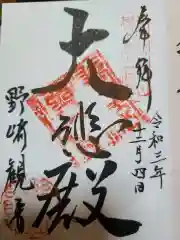 奉拝
令和三年
十二月四日
大悲殿
野崎観音